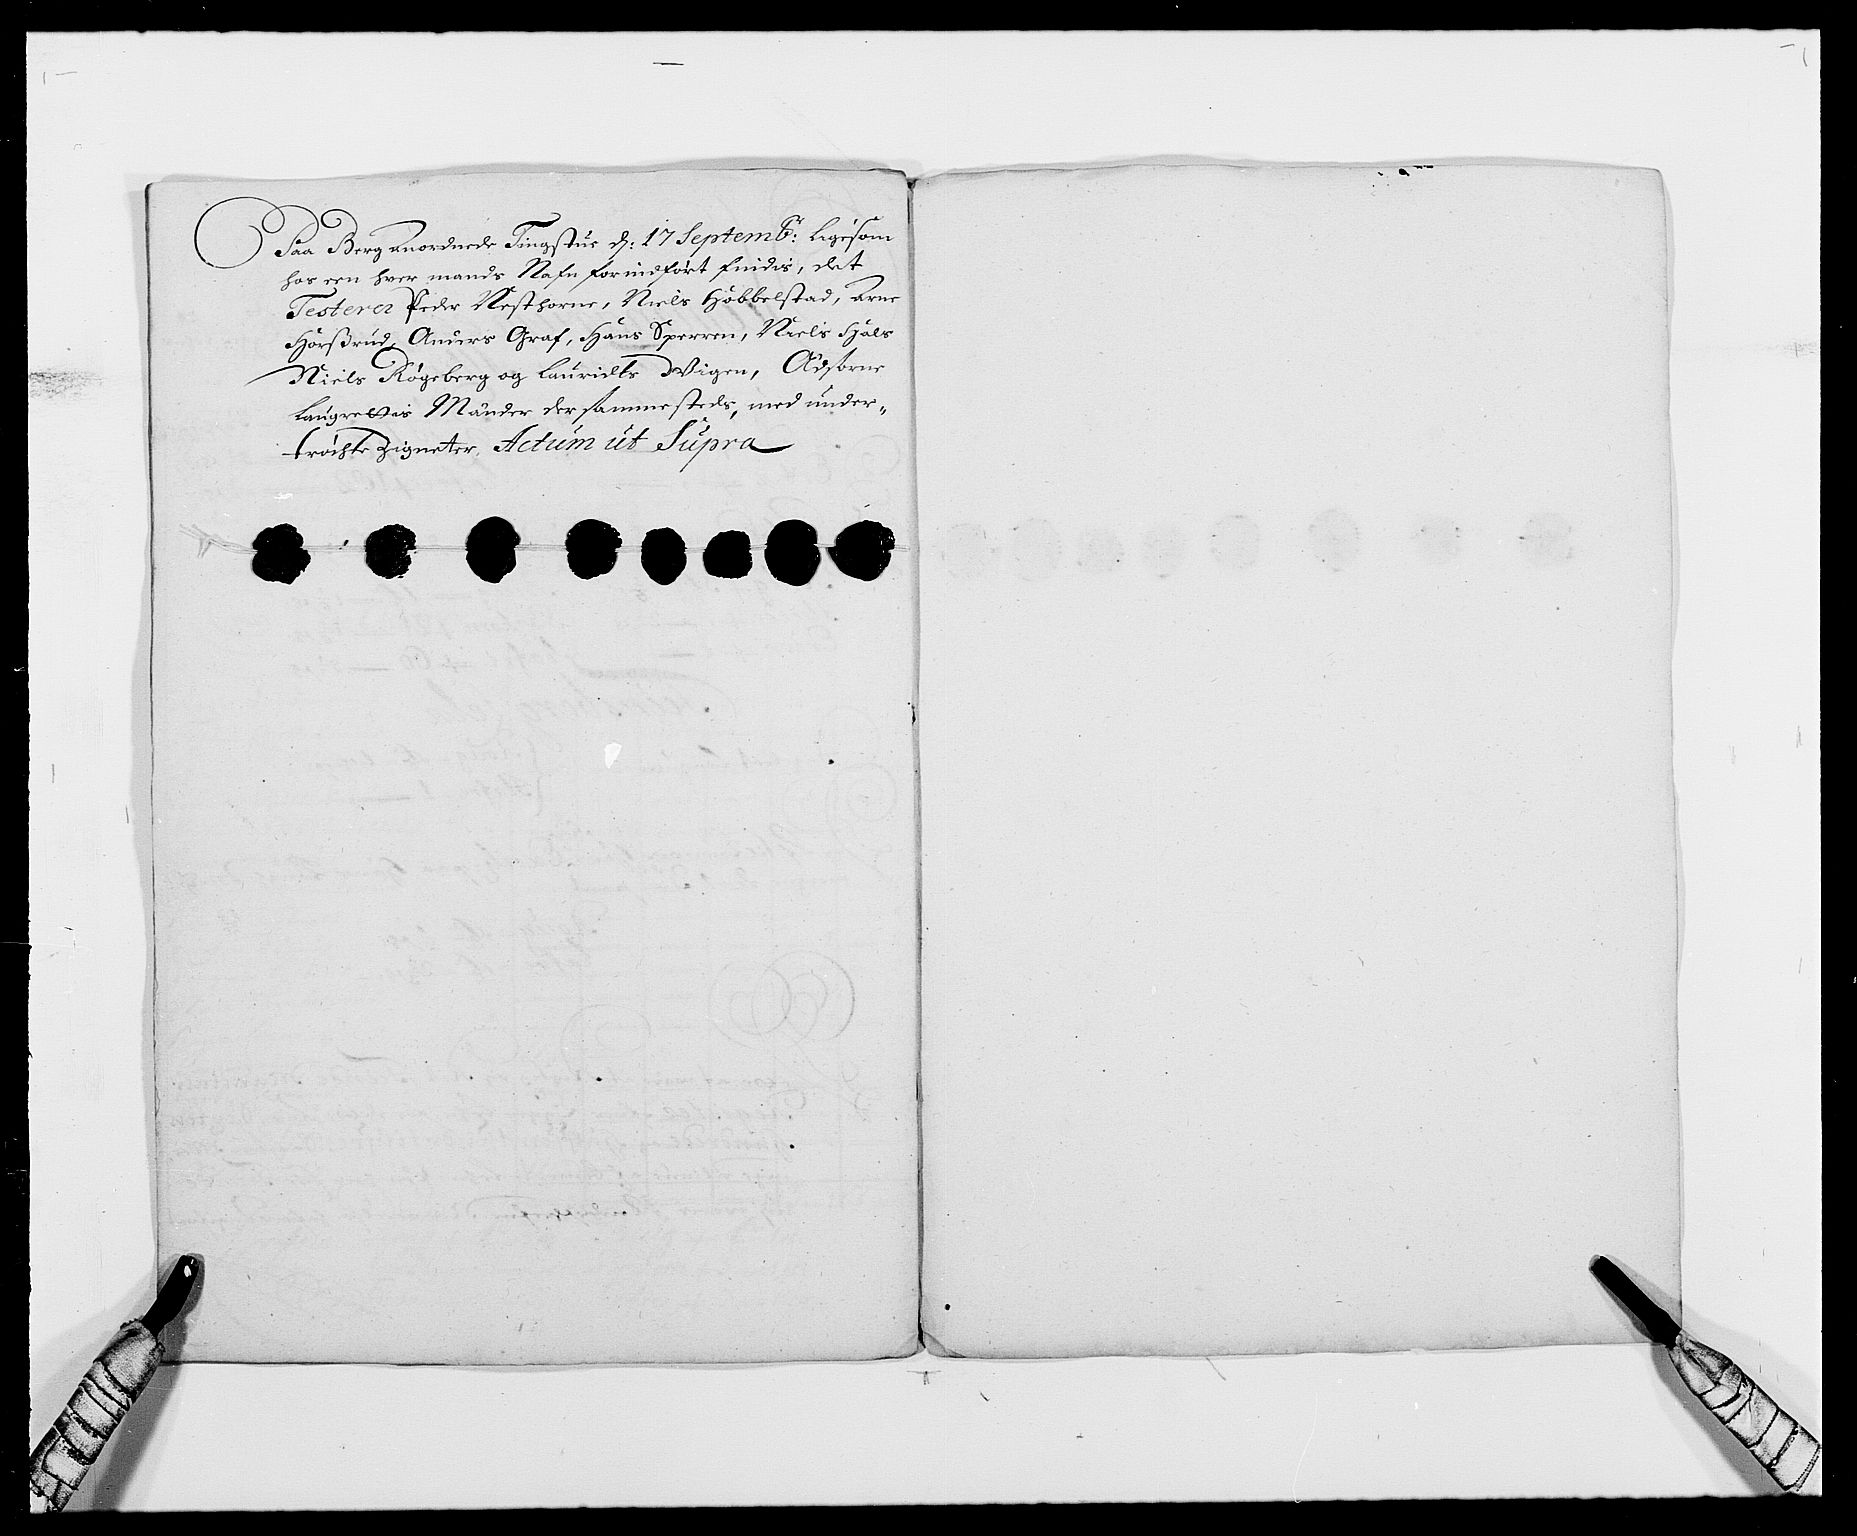 Paa Berg anordnede Tingstue d: 17 Septembr: Ligesom
hos een hver mands Nafn forindført findis, det
Testerer Peder Nesthorne, Niels Hobbelstad, Arne
Horßrud, Anders Graf, Hans Sperren, Niels Hiäls
Niels Røgeberg og Lauridts Wigen, Adsorne
Laugrettis Mænder dersammesteds, med under-
tröchte Zigneter. Actum ut Supra